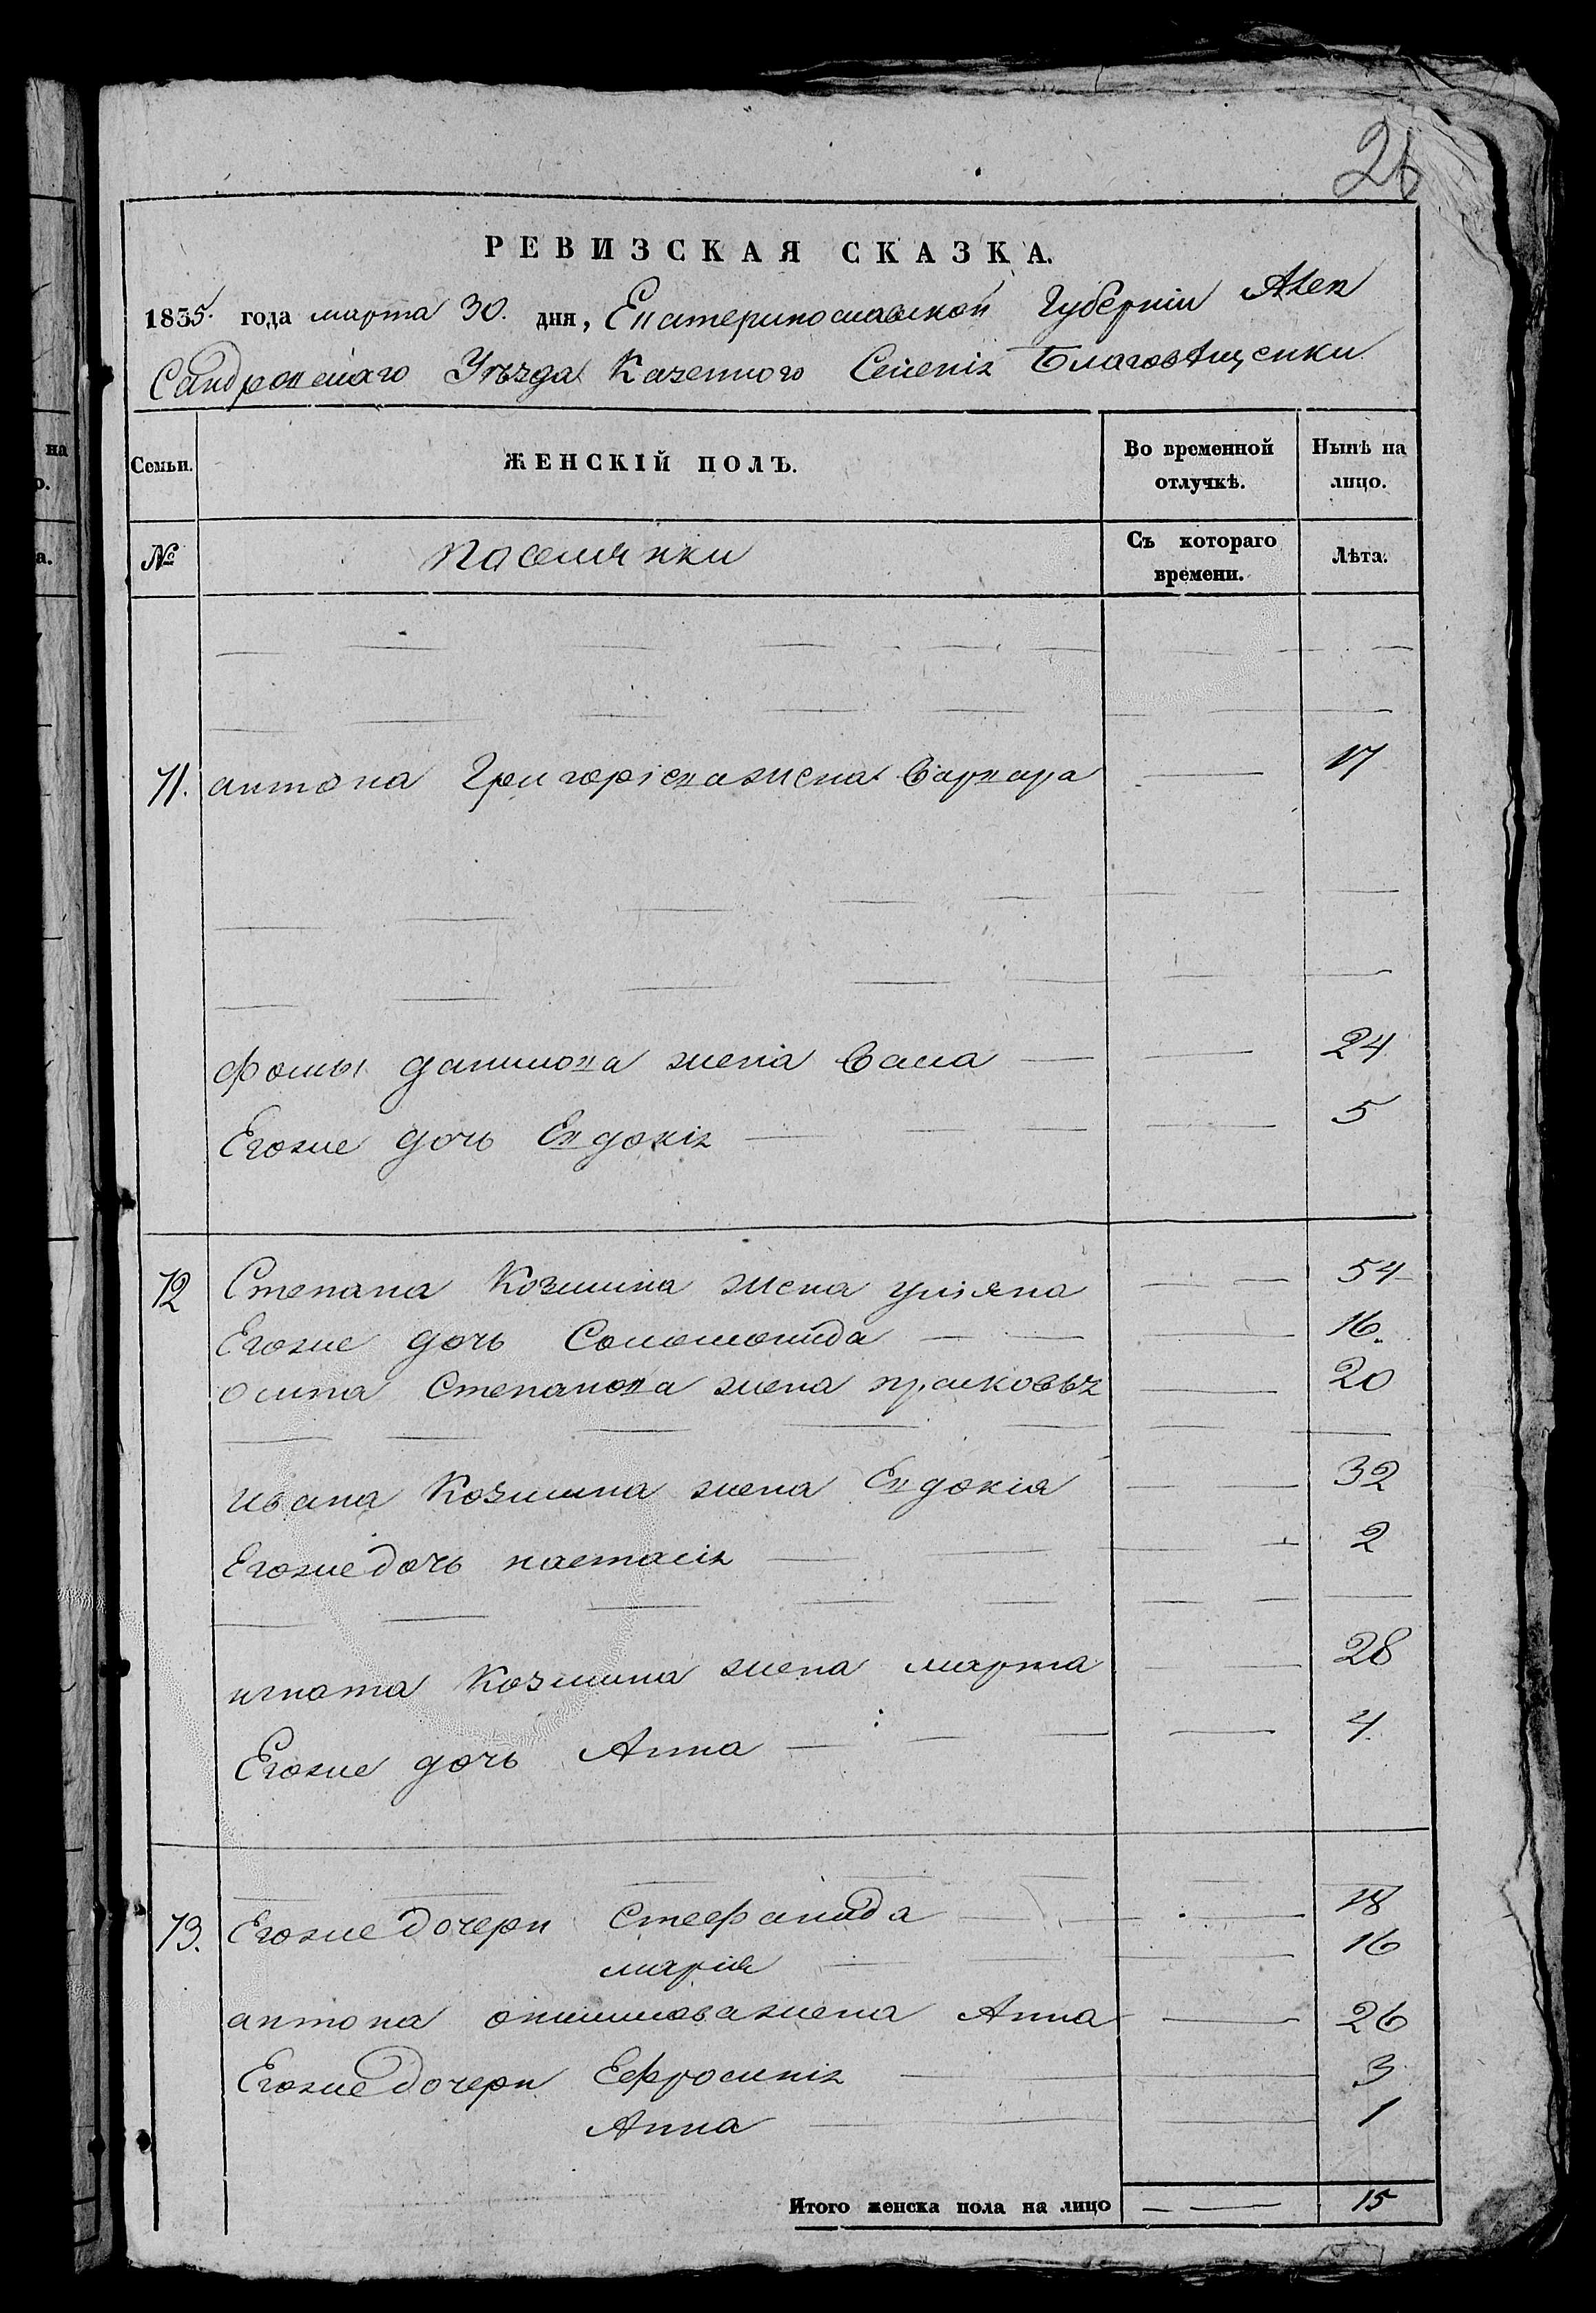 26
РЕВИЗСКАЯ СКАЗКА.
1835. года марта 30. дня, Екатеринославской Губерніи Алек
Сандровскаго Уѣзда Казенного Селенія Благовѣщенки
на
о.
а.
Семьи.
ЖЕНСКІЙ ПОЛЪ.
Во временной отлучкѣ.
Нынѣ на лицо.
№
Поселянки
Съ котораго времени.
Лѣта.
11. антона Григорієва жена Варвара 17
фомы данилова жена Васа 24
Егоже дочь Евдокія 5
12 Степана Козмина жена улияна 54
Егоже дочь Соломонида 16.
осипа Степанова жена прасковья 20
ивана Козмина жена Евдокія 32
Егоже дочь настасія 2
игната Козмина жена марта 28
Егоже дочь Анна 4.
13. Егоже дочери Стефанида 18
марія 16
антона жена Анна 26
Егоже дочери Ефросинія 3
Анна 1
Итого женска пола на лицо 15